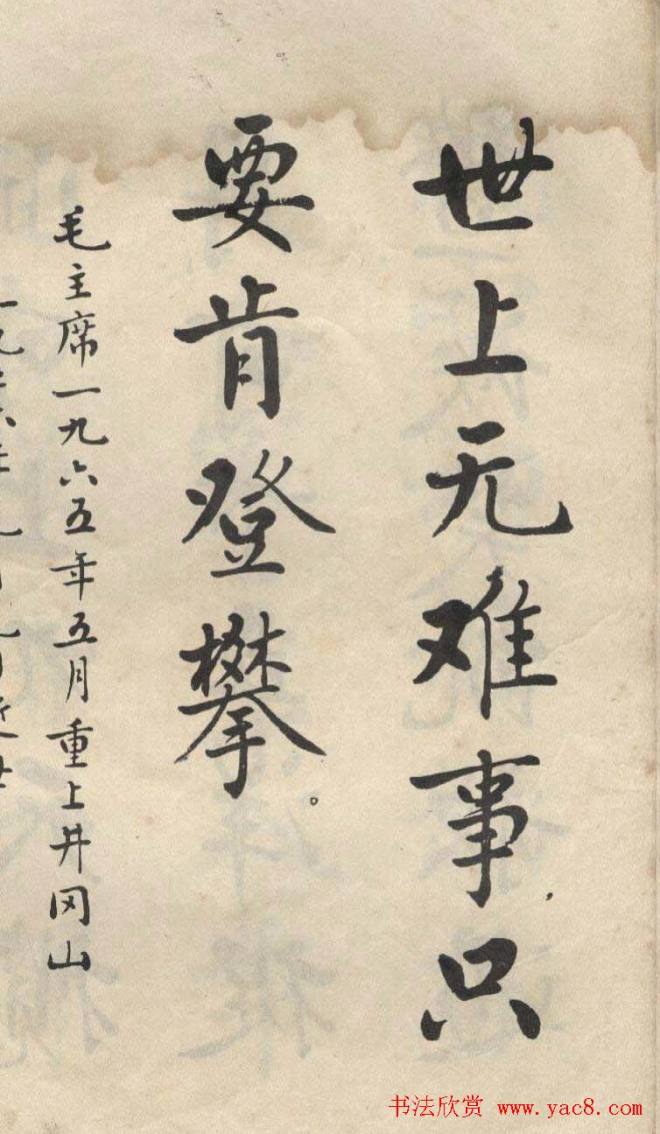 世上无难事,只
要肯登攀。
毛主席一九六五年五月重上井冈山
书法欣赏 www.yac8.com